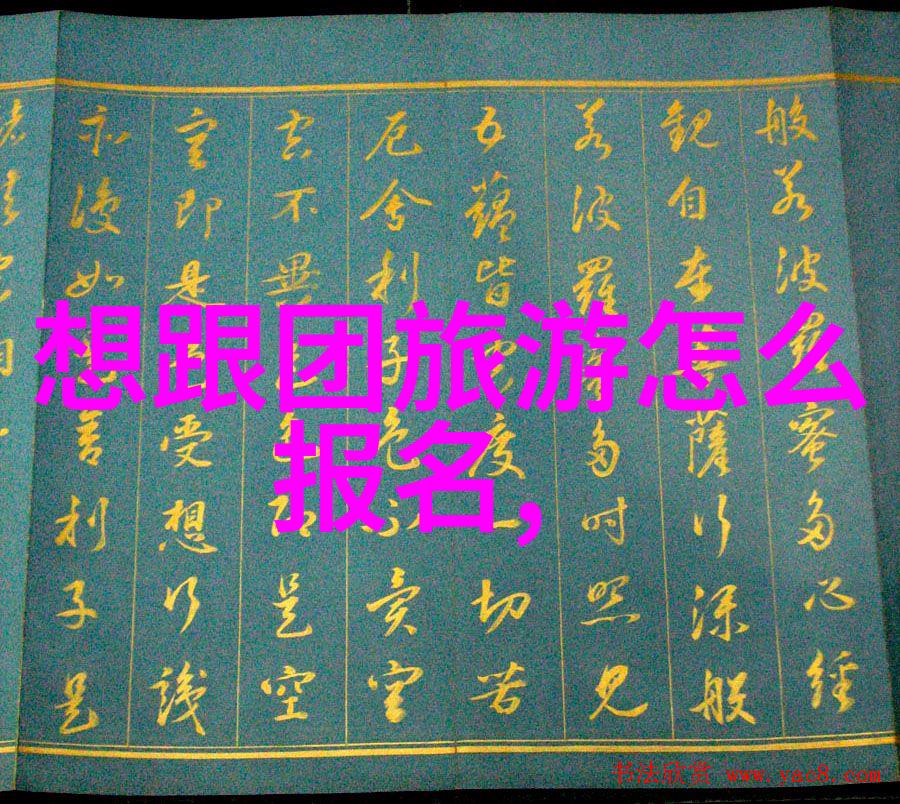 般若波羅蜜多心經
觀自在薩行深般
若波羅多時照見
五蘊皆空度一切苦
厄舍利子色不異空
空不異色即是空
空即是受想行識
亦復如舍利子是
想跟团旅游怎么
报名,
书法欣赏 www.yac8.com